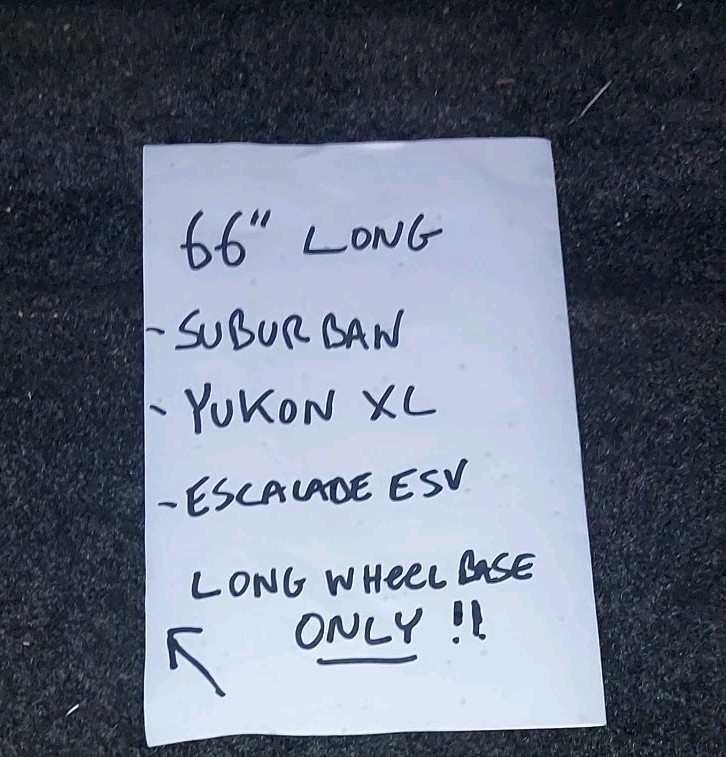 66" LONG
- SUBURBAN
- YUKON XL
- ESCALADE ESV
LONG WHEEL BASE
ONLY !!